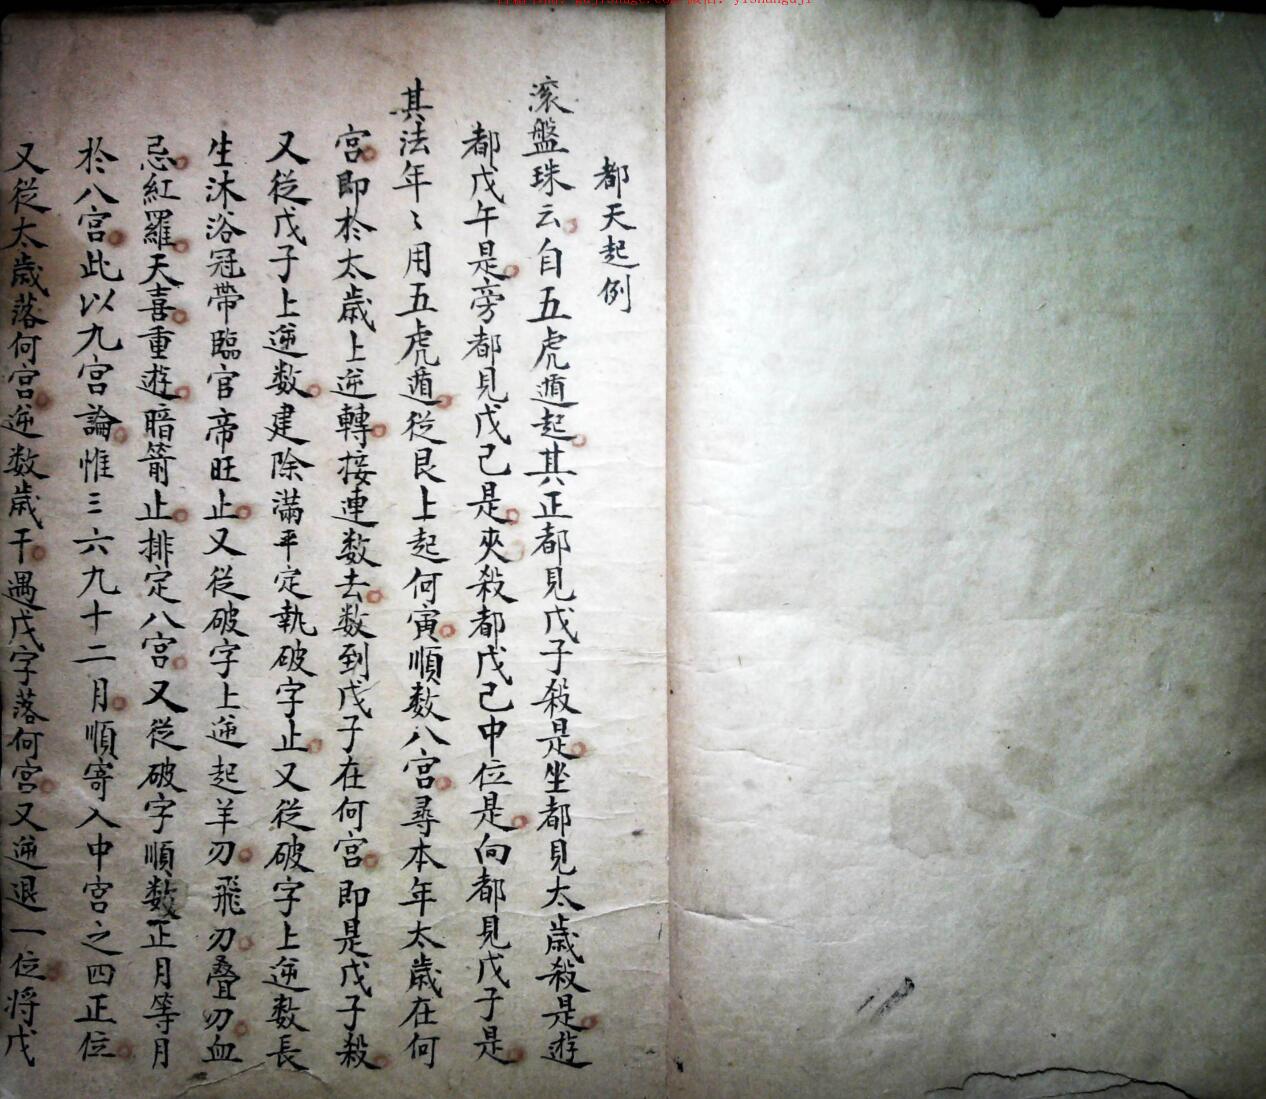 都天起例
滚盤珠云自五虎遁起其正都見戊子殺是坐都見太歲殺是遊
都戊午是旁都見戊己是夾殺都戊己中位是向都見戊子是
其法年〻用五虎遁從艮上起何寅順数八宮尋本年太歲在何
宮即於太歲上逆轉接連数去数到戊子在何宮即是戊子殺
又從戊子上逆数建除滿平定執破字止又從破字上逆数長
生沐浴冠帶臨官帝旺止又從破字上逆起羊刃飛刃疊刃血
忌紅羅天喜重遊暗箭止排定八宮又從破字順数正月等月
於八宮此以九宮論惟三六九十二月順寄入中宮之四正位
又從太歲落何宮逆数歲干遇戊字落何宮又逆退一位将戊